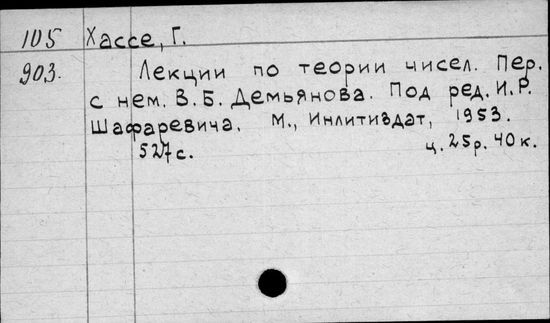 105 Хассе, Г.
903. Лекции по теории чисел. Пер.
с нем. В.Б. Демьянова. Под ред. И.Р.
Шафаревича. М., Инлитиздат, 1953.
527с. ц. 25р. 40к.